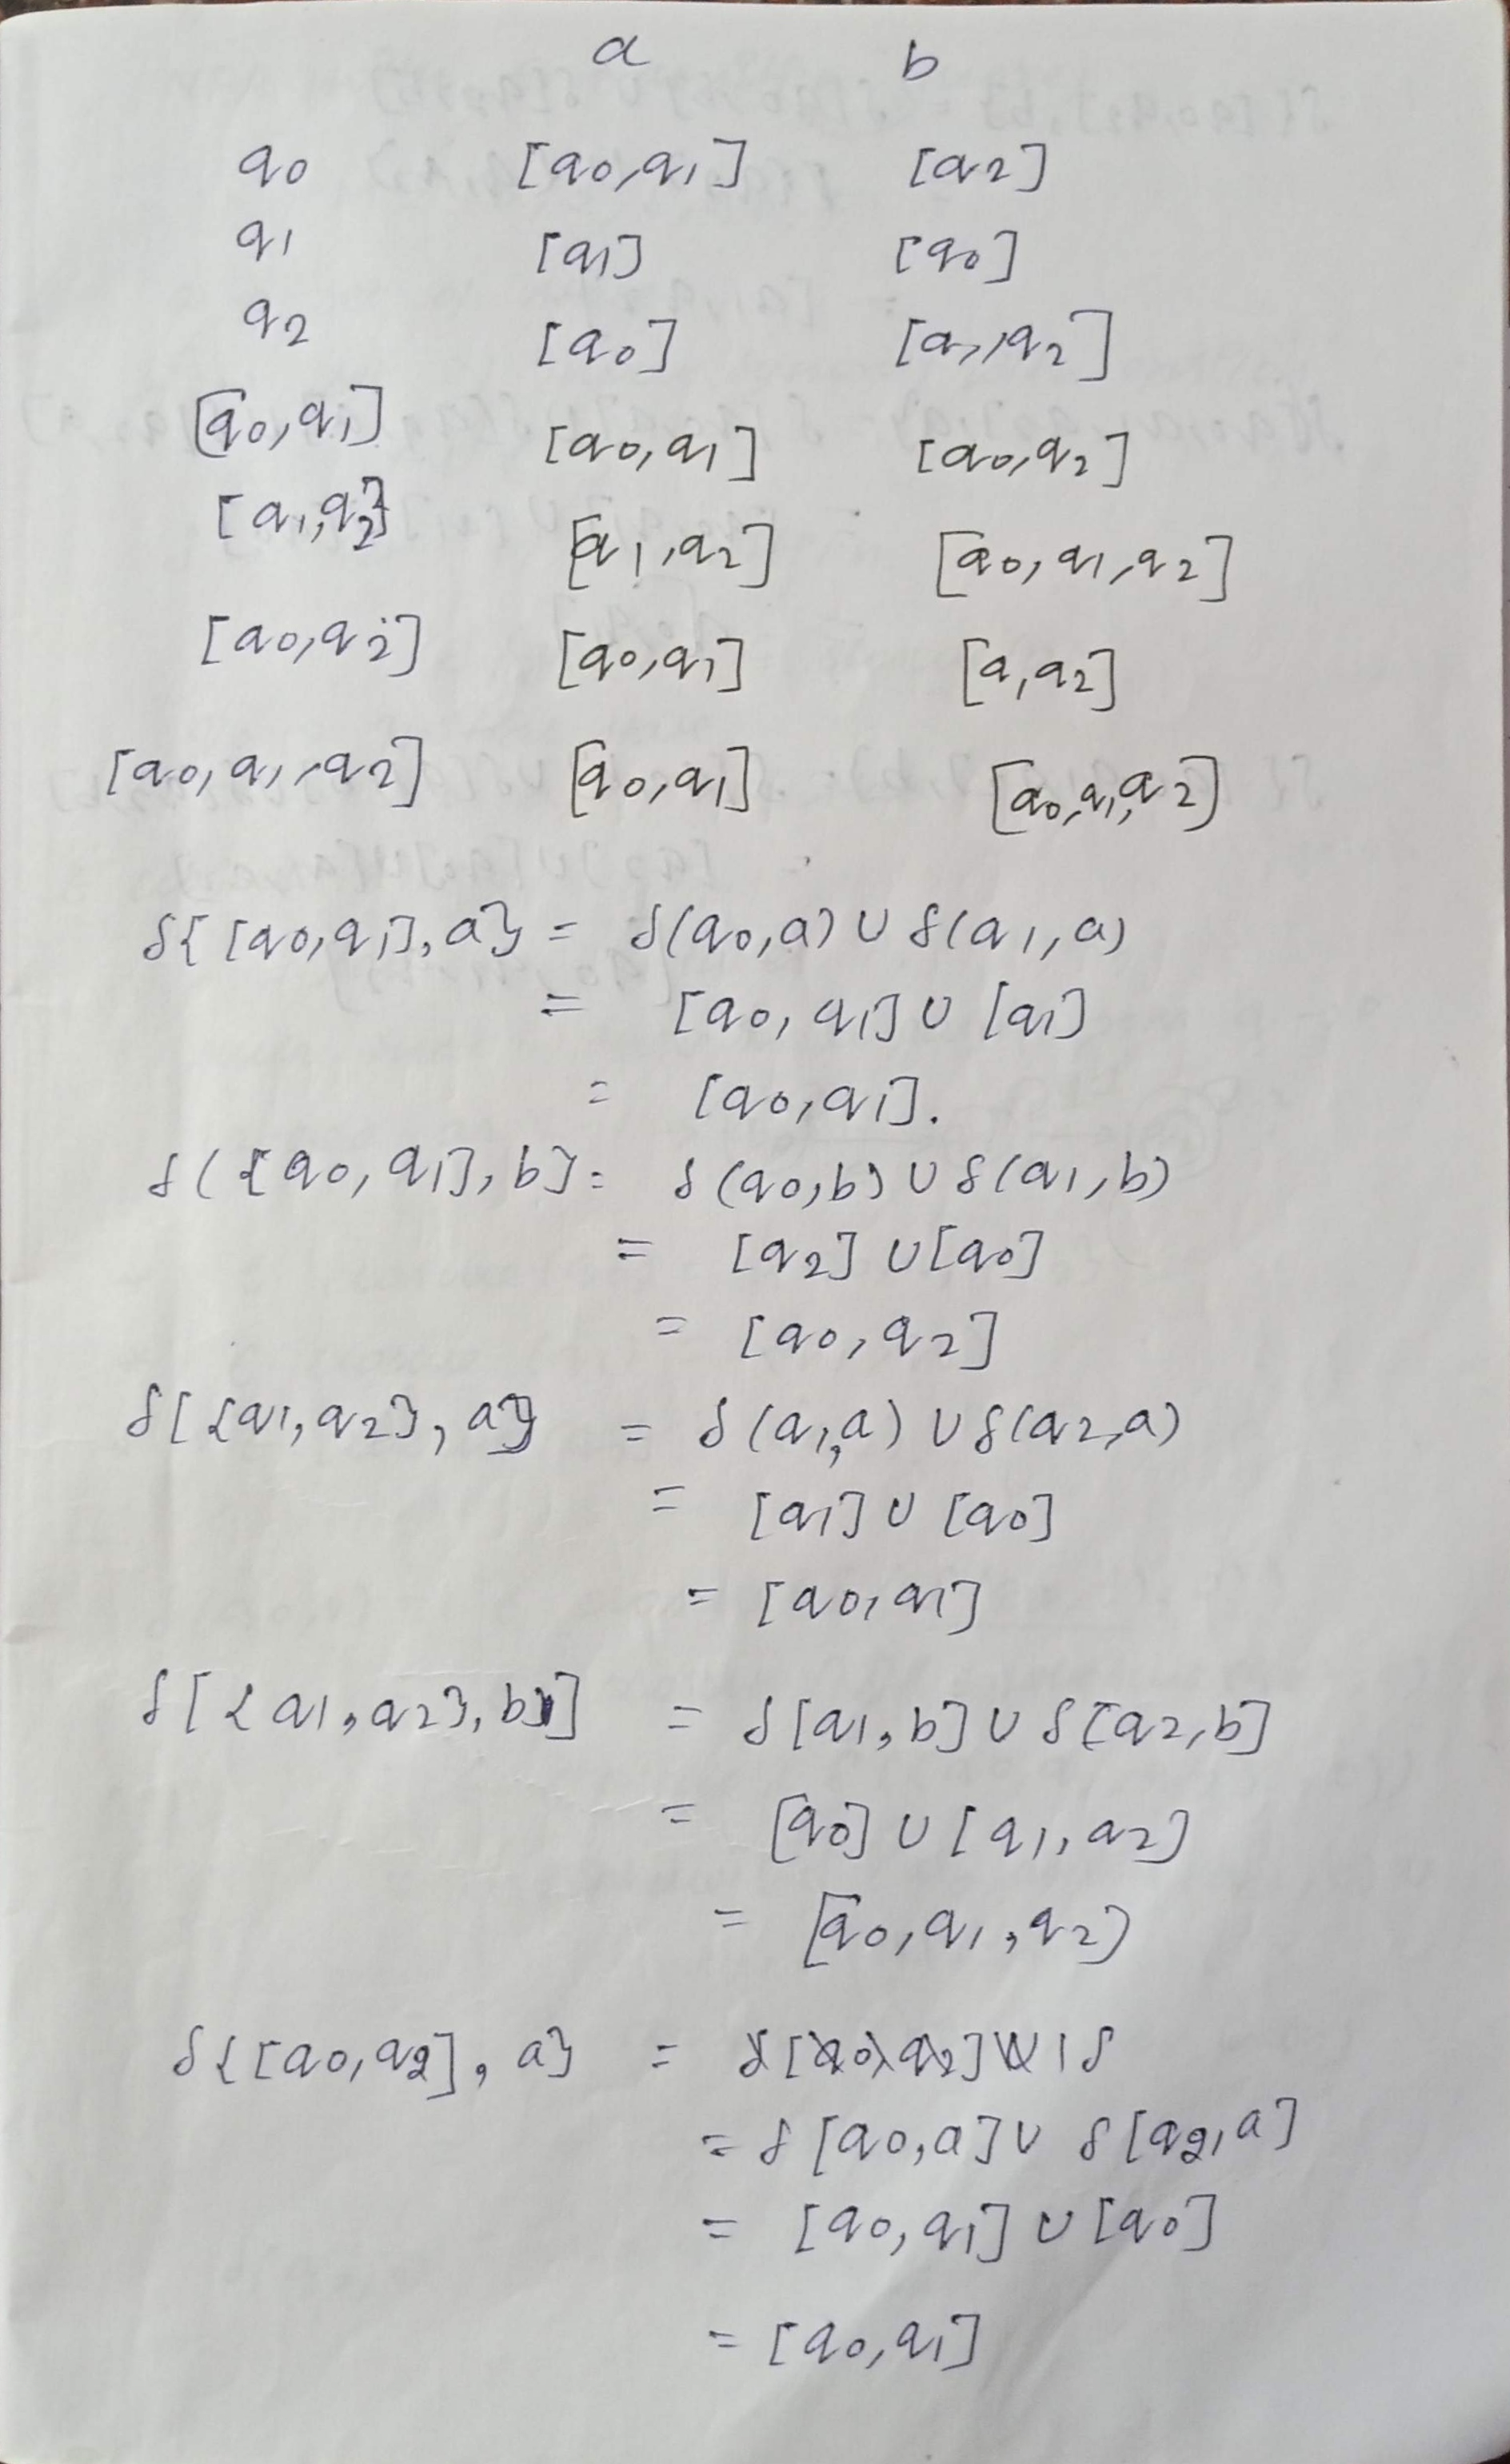 a b
q0 [q0,q1] [q2]
q1 [q1] [q0]
q2 [q0] [q1,q2]
[q0,q1] [q0,q1] [q0,q2]
[q1,q2} [q1,q2] [q0,q1,q2]
[q0,q2] [q0,q1] [q1q2]
[q0,q1,q2] [q0,q1] [q0,q1,q2]
δ{[q0,q1],a} = δ(q0,a) ∪ δ(q1,a)
= [q0,q1] ∪ [q1]
= [q0,q1].
δ({q0,q1],b} = δ(q0,b) ∪ δ(q1,b)
= [q2] ∪ [q0]
= [q0,q2]
δ[{q1,q2},a} = δ(q1,a) ∪ δ(q2,a)
= [q1] ∪ [q0]
= [q0,q1]
δ[{q1,q2},b] = δ[q1,b] ∪ δ[q2,b]
= [q0] ∪ [q1,q2]
= [q0,q1,q2)
δ{[q0,q2],a} = δ[q0,q2] ∪ | δ
= δ[q0,a] ∪ δ[q2,a]
= [q0,q1] ∪ [q0]
= [q0,q1]